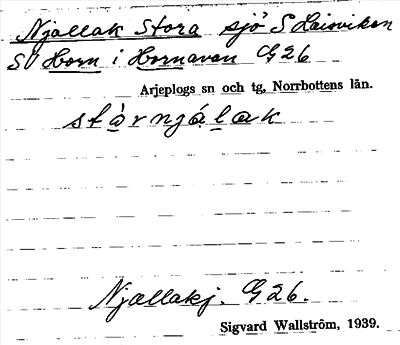 Njallak Stora sjö S Laisviken
SV Horn i Hornavan G 26
Arjeplogs sn och tg, Norrbottens län.
stàrnjálak
Njallakj. G 26.
Sigvard Wallström, 1939.